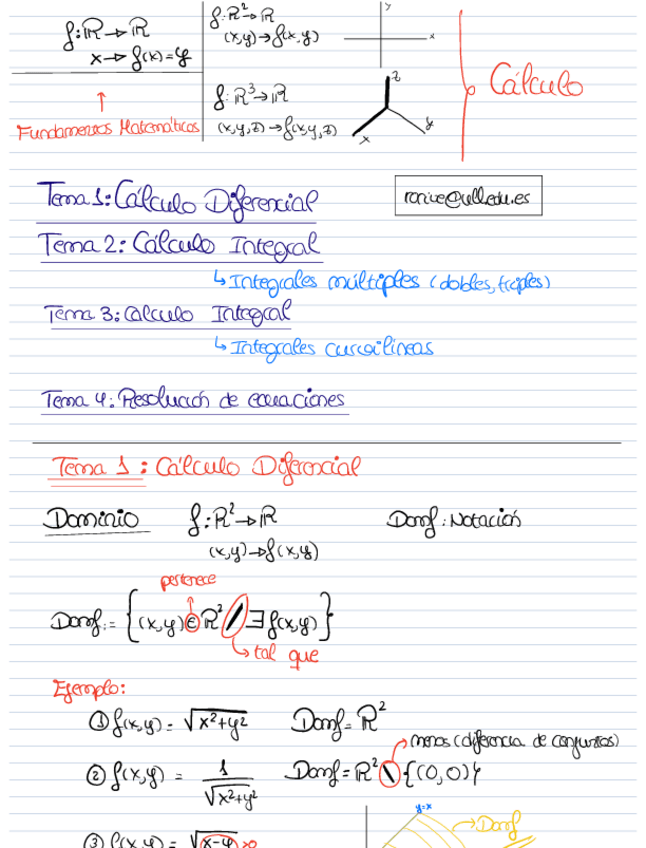 f:ℝ→ℝ
x→f(x)=y
Fundamentos Matemáticos
f:ℝ²→ℝ
(x,y)→f(x,y)
y
x
f:ℝ³→ℝ
(x,y,z)→f(x,y,z)
z
x
y
Cálculo
Tema 1: Cálculo Diferencial
ronive@ull.edu.es
Tema 2: Cálculo Integral
↳ Integrales múltiples (dobles, triples)
Tema 3: Cálculo Integral
↳ Integrales curvilíneas
Tema 4: Resolución de ecuaciones
Tema 1: Cálculo Diferencial
Dominio f:ℝ²→ℝ Domf: Notación
(x,y)→f(x,y)
pertenece
Domf:={(x,y)∈ℝ²/∃f(x,y)}
↳ tal que
Ejemplo:
① f(x,y)=√x²+y² Domf=ℝ²
menos (diferencia de conjuntos)
② f(x,y) = 1/√x²+y² Domf=ℝ²\{(0,0)}
y=x
Domf
③ f(x,y) = √x-y